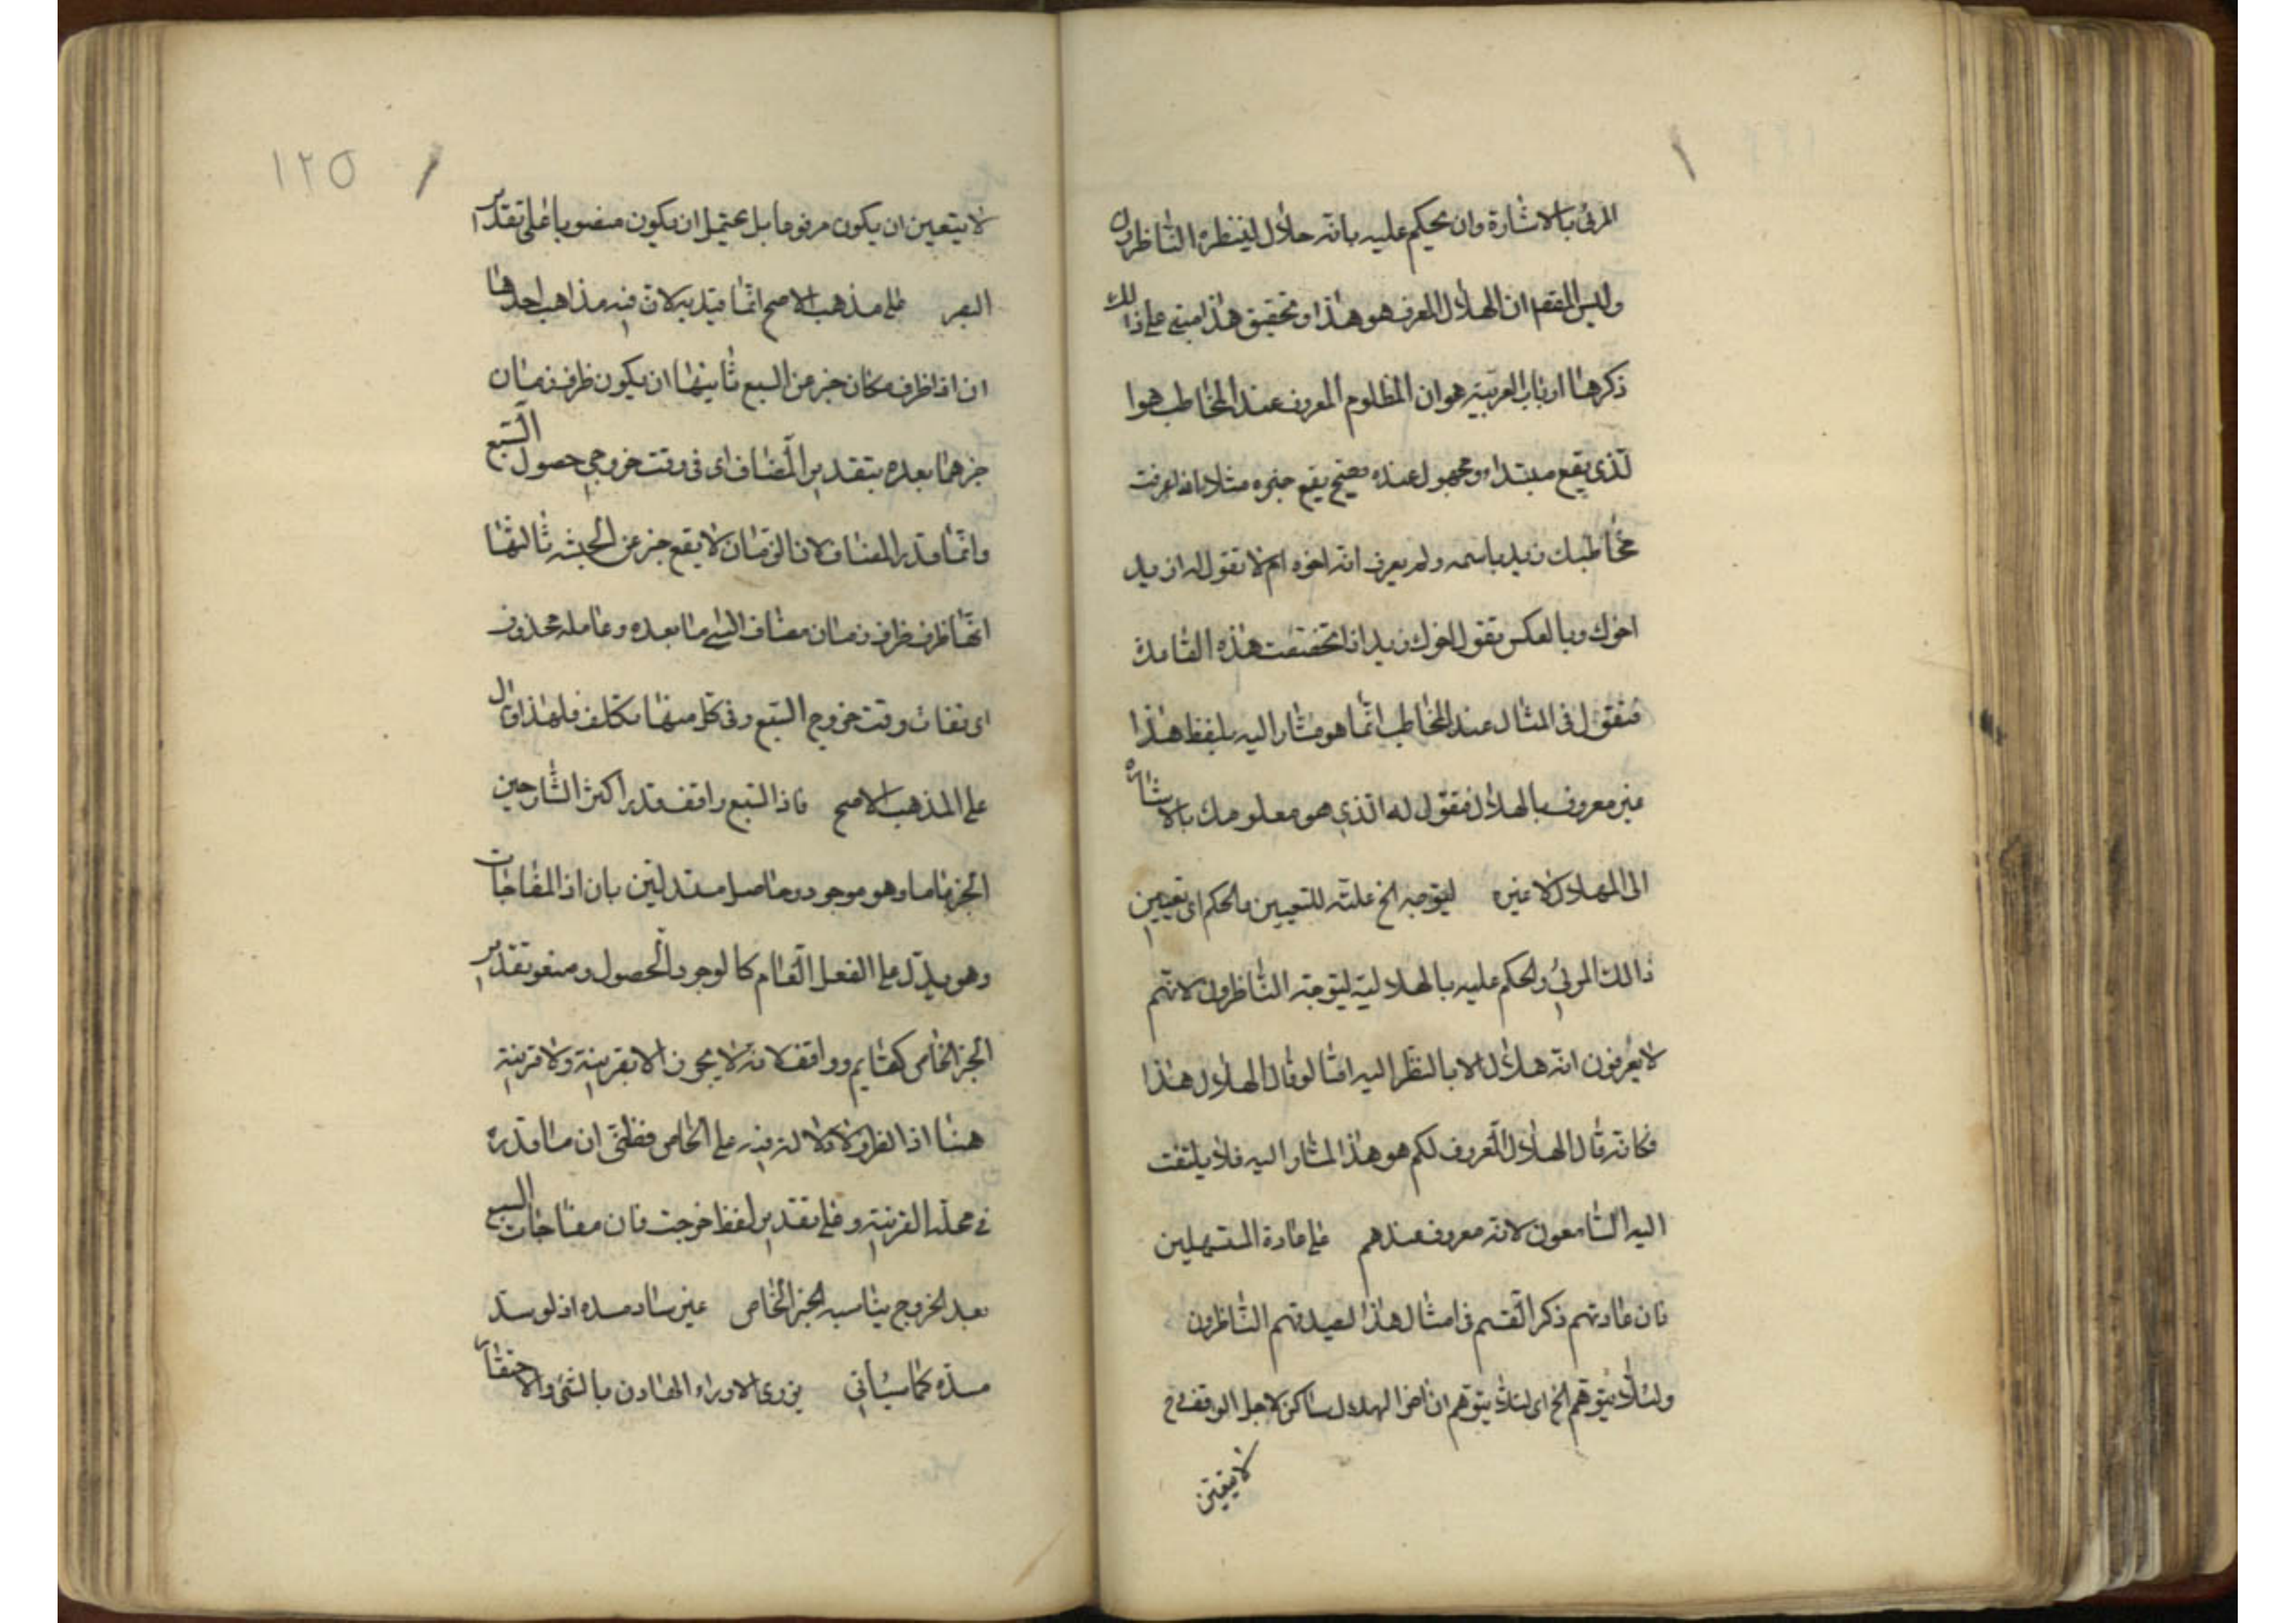 المرئ بالاشارة وان يحكم عليه بانه هلال لينظره الناظرون
وليس المقصم ان الهلال المعرف هو هذا وتحقيق هذا مبني على ذالك
ذكرها ارباب العربية هو ان المظلوم المعرف عند المخاطب هوا
لذي يقع مبتداء ومجهول عنده يقع خبره مثلا اذا عرفت
مخاطبك زيد باسمه ولم يعرف انه اخوه ام لا تقول له ازيد
اخوك وبالعكس تقول اخوك زيد اذا تحققت هذه القامدة
فنقول في المثال عند المخاطب انما هو مشار اليه بلفظ هذا
غير معروف بالهلال فنقول له الذي هو معلومك بالاشارة
الى الهلال لا غيره ليتوجه الخ علته للتعيين والحكم اى تعيين
ذالك المرئي والحكم عليه بالهلالية ليتوجه الناظرون لانهم
لا يعرفون انه هلال الا بالنظر اليه امثا لو قال الهلال هذا
فكانه قال الهلال المعروف لكم هو هذا المشار اليه فلا يلتفت
اليه السامعون لانه معروف عندهم على عادة المستهلين
فان عادتهم ذكر القسم في امثال هذا ليصدقهم الناظرون
ولئلا يتوهم الخ اى لئلا يتوهم ان اخر الهلال ساكن لاجل الوقف فح
لا يتعين
١٢٥
لا يتعين ان يكون مرفوعا بل يحتمل ان يكون منصوبا على تقدير
البصر على مذهب الاصح انما قيد به لان فيه مذاهب احدها
ان اذا ظرف مكان خبر عن السبع ثانيها ان يكون ظرف زمان
خبر عما بعده بتقدير المضاف اى في وقت خروجي حصول السبع
وانما قدر المضاف لان الزمان لا يقع خبر عن الجثه ثالثها
انها ظرف ظرف زمان مضاف الى ما بعده وعامله محذوف
اى وقت خروج السبع وفي كل منها تكلف فلهذا قال
على المذهب الاصح فاذا السبع واقف قدر اكثر الشارحين
الخبر عاما وهو موجود وحاصل مستدلين بان اذا المفاجات
وهو يدل على الفعل العام كالوجود والحصول ومنعو تقدير
الخبر الخاص كقايم وواقف لانه لا يجوز الا بقرينة ولا قرينة
هنا اذ الفرق لا دلالة فيه على الخاص فظني ان ما قدره
في محله القرينة وعلى تقدير لفظ خرجت فان مفاجات السبع
بعد الخروج يناسبه الخبر الخاص غير ساد مسده اذ لو سد
مسده كما سيأتي